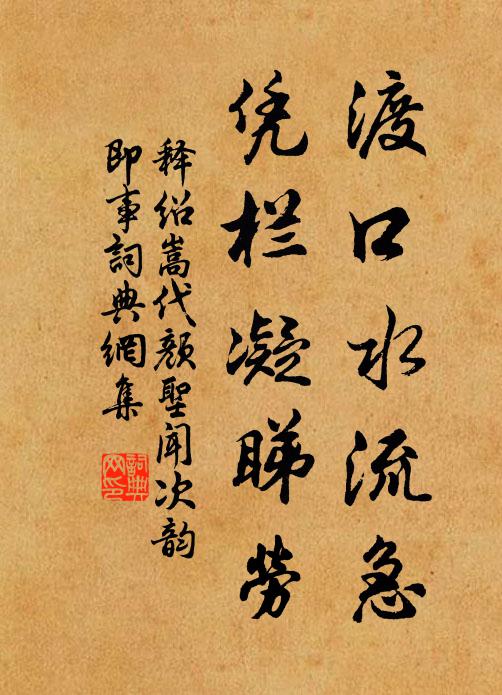 渡口水流急
凭栏凝睇勞
释绍嵩代颜聖闻次韵
即事詞典網集
詞典
网印